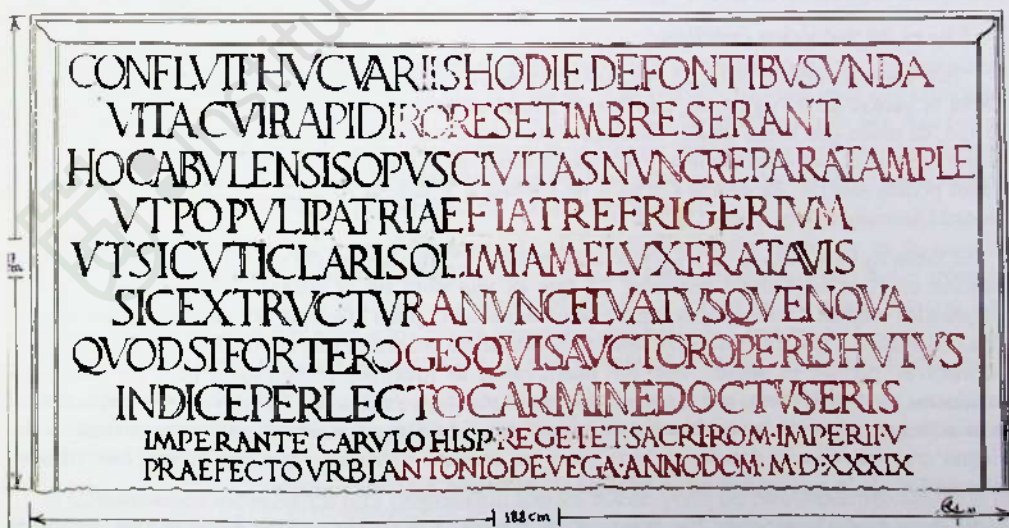 CONFLVITHVCVARIISHODIEDEFONTIBVSVNDA
VITACVIRAPIDIRORESETIMBRESERANT
HOCABVLENSISOPVSCIVITASNVNCREPARATAMPLE
VTPOPVLIPATRIAEFIATREFRIGERIVM
VTSICVTICLARISOLIMIAMFLVXERATAVIS
SICEXTRVCTVRANVNCFLVATVSQVENOVA
QVODSIFORTEROGESQVISAVCTOROPERISHVIVS
INDICEPERLECTOCARMINEDOCTVSERIS
IMPERANTE CARVLO HISP·REGE·I·ET·SACRIROM·IMPERII·V
PRAEFECTOVRBIANTONIODEVEGA·ANNODOM·M·D·XXXIX
188cm
Institu